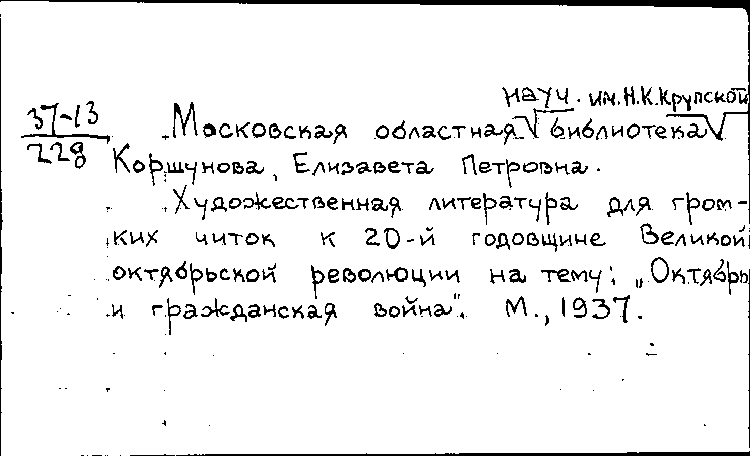 науч. им. Н.К. Крупской
37-13 Московская областная√ библиотека√
228 Коршунова, Елизавета Петровна.
Художественная литература для гром-
ких читок к 20-й годовщине Великой
октябрьской революции на тему: „Октябрь
и гражданская война". М., 1937.